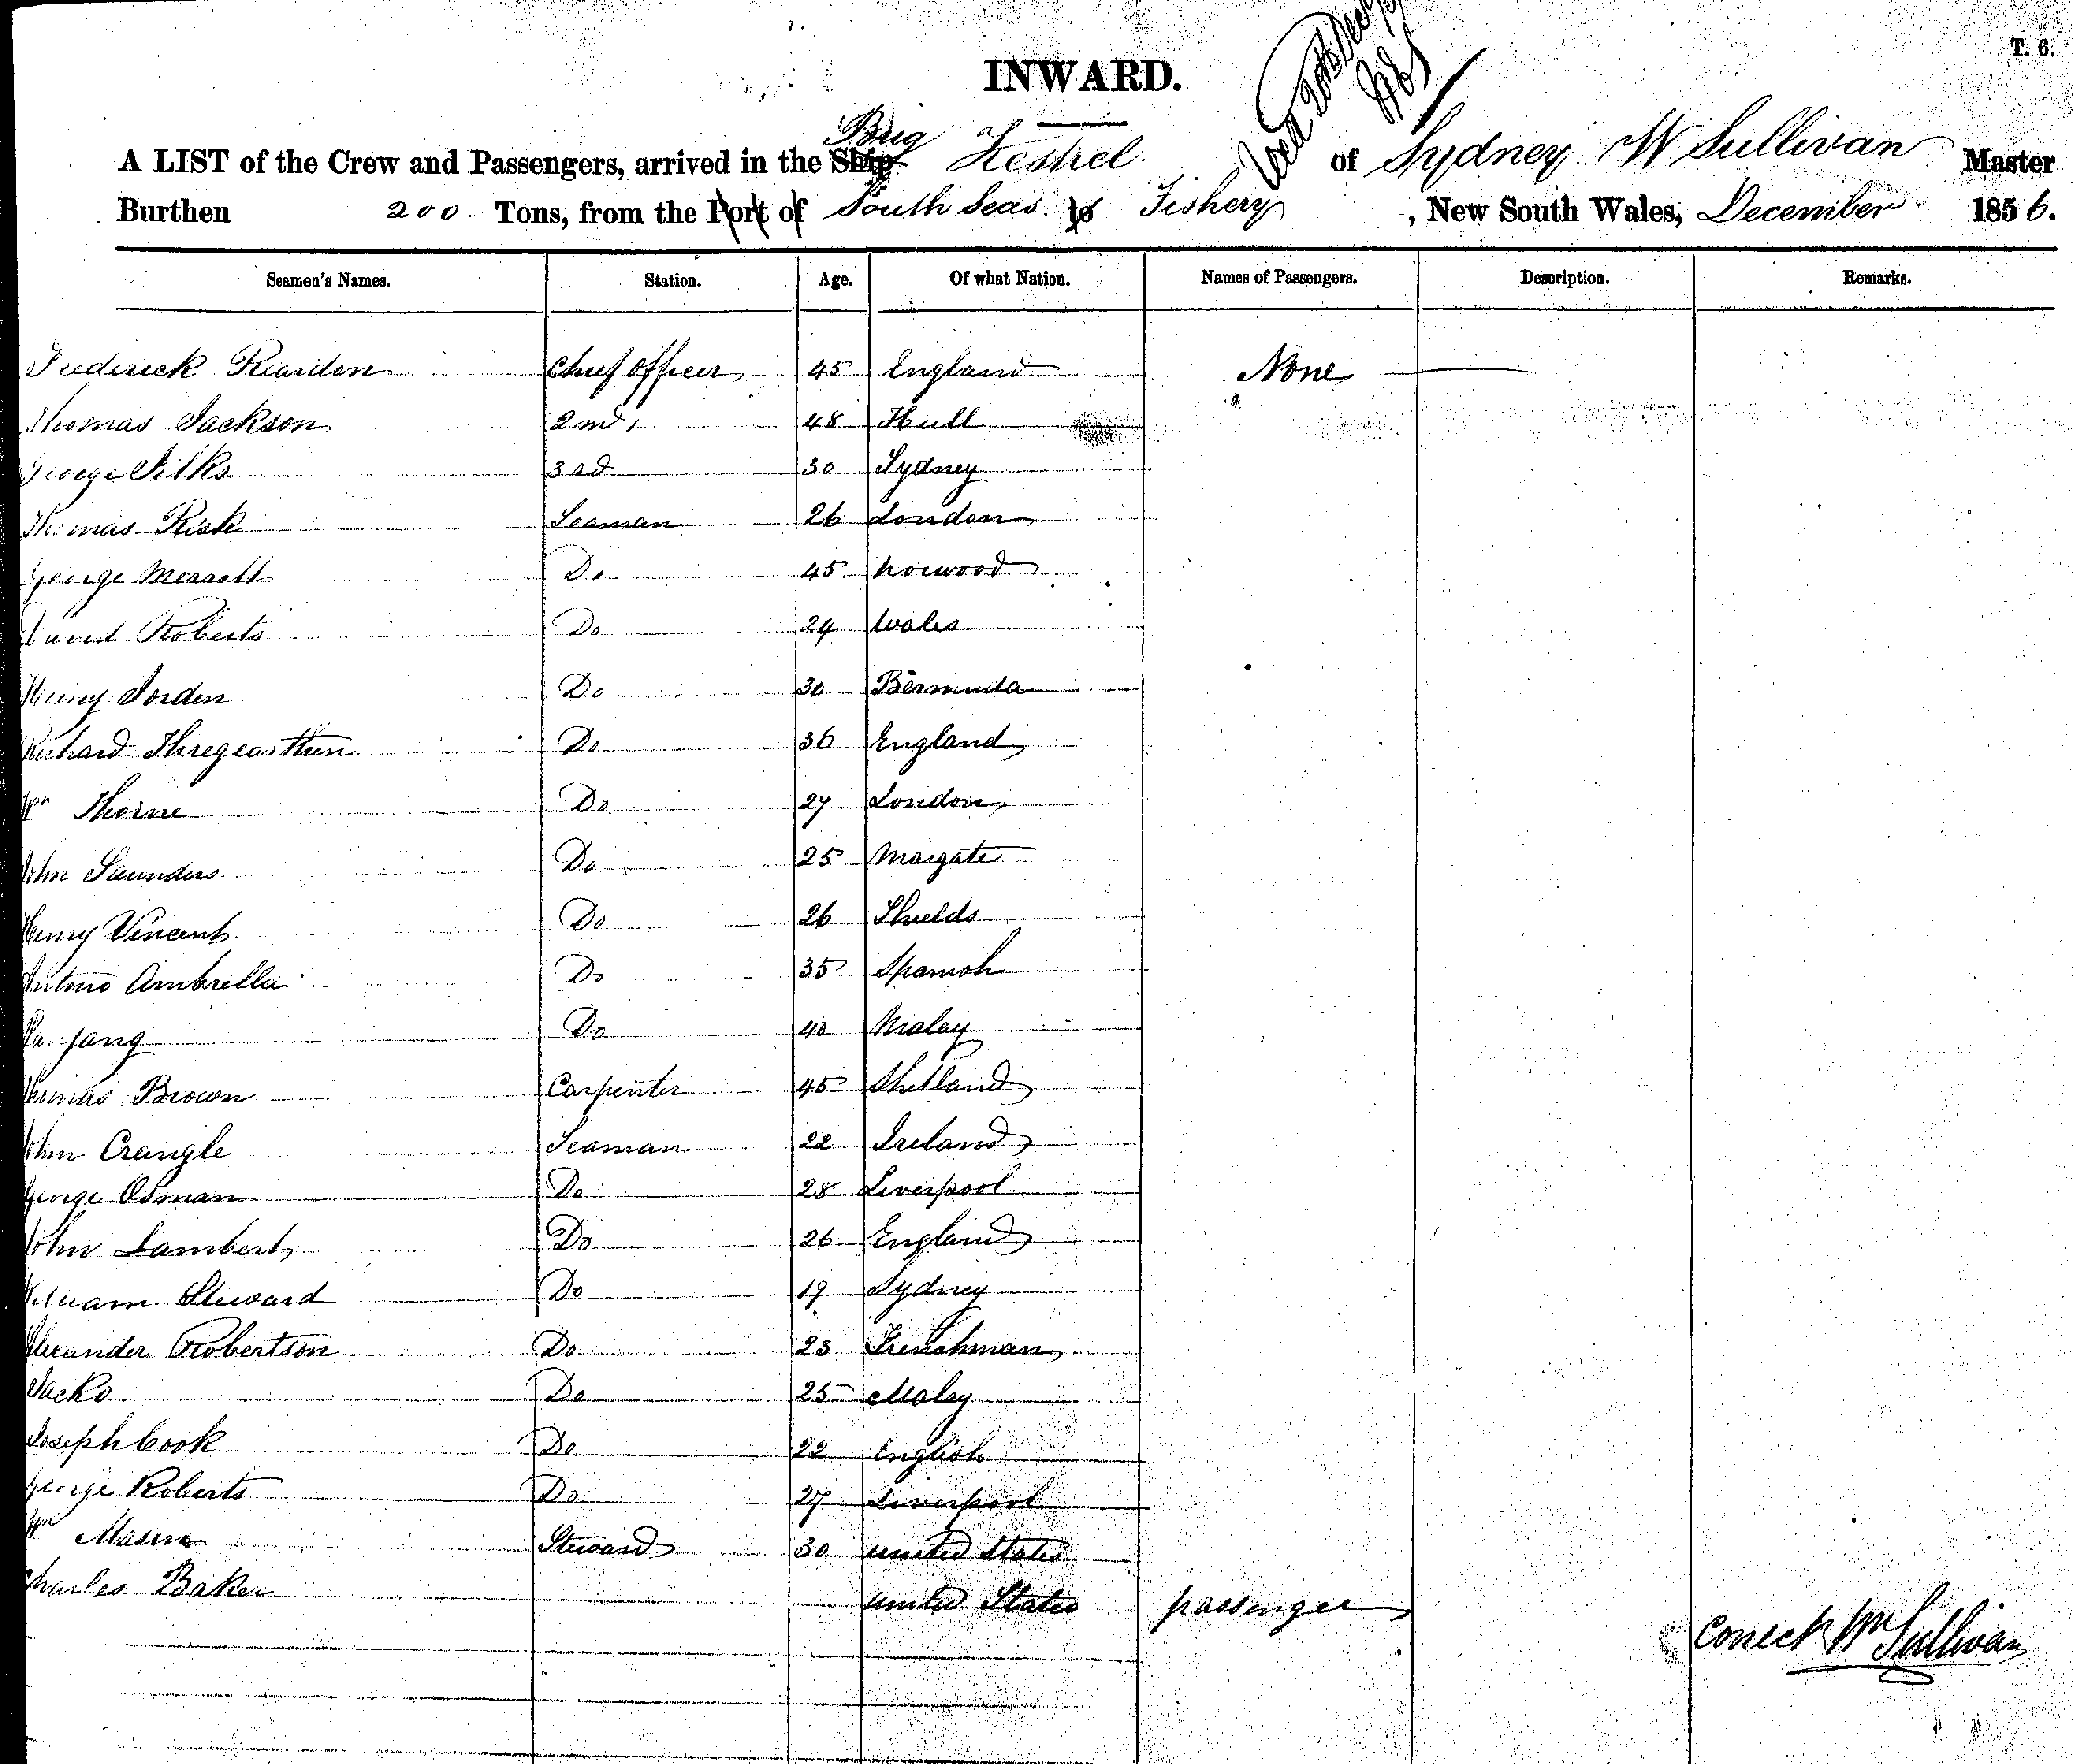 T. 6.
INWARD.
Brig
A LIST of the Crew and Passengers, arrived in the Ship Kestrel of Sydney W Sullivan Master
Burthen 200 Tons, from the Port of South Seas to Fishery, New South Wales, December 1856.
Seamen's Names. Station. Age. Of what Nation. Names of Passengers. Description. Remarks.
Frederick Reardon Chief Officer 45 England None
Thomas Jackson 2nd 48 Hull
George Silks 3rd 30 Sydney
Thomas Risk Seaman 26 London
George Merrill Do 45 Norwood
David Roberts Do 24 Wales
Henry Jorden Do 30 Bermuda
Richard Thregearthen Do 36 England
Wm Thorne Do 27 London
John Saunders Do 25 Margate
Henry Vincent Do 26 Shields
Antonio Ambrella Do 35 Spanish
Do 40 Malay
Thomas Brown Carpenter 45 Shetland
John Crangle Seaman 22 Ireland
George Osman Do 28 Liverpool
John Lambert Do 26 England
William Steward Do 19 Sydney
Alexander Robertson Do 23 Frenchman
Jacko Do 25 Malay
Joseph Cook Do 22 English
George Roberts Do 27 Liverpool
Wm Mason Steward 30 United States
Charles Baker United States passenger
Correct Wm Sullivan